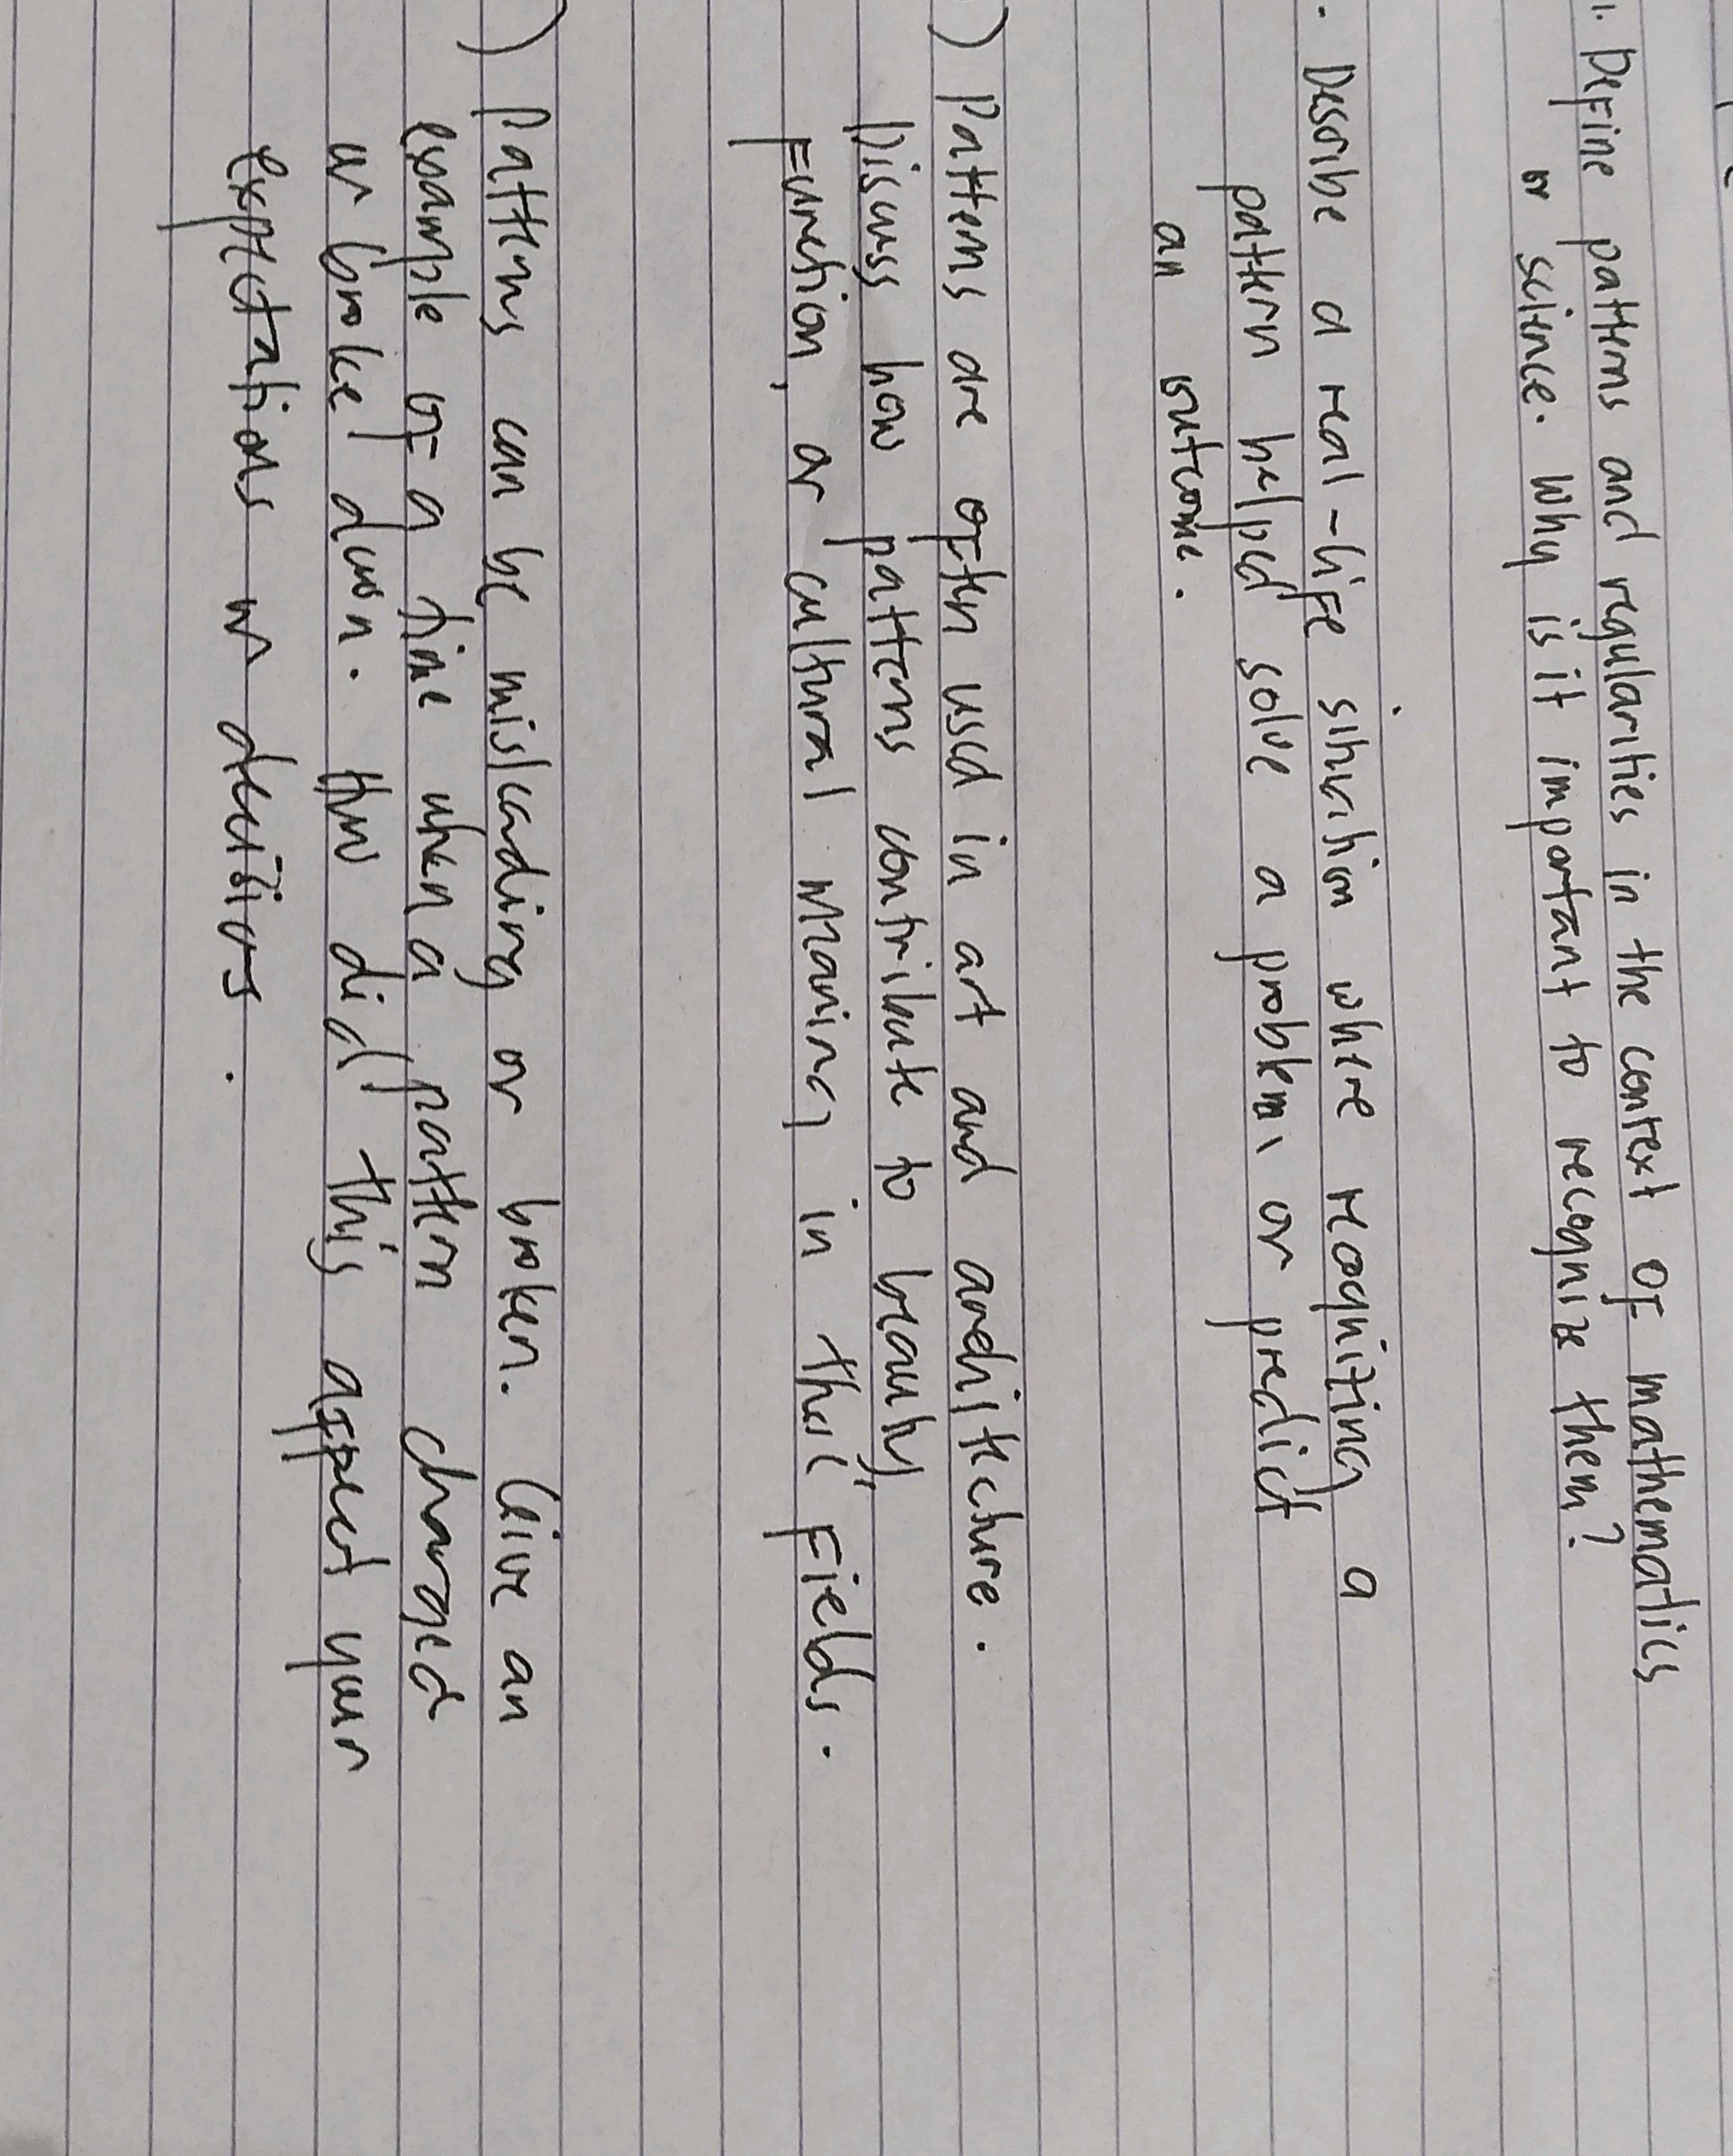 1. Define patterns and regularities in the context of mathematics
or science. Why is it important to recognize them?
. Describe a real-life situation where recognizing a
pattern helped solve a problem or predict
an outcome.
) Patterns are often used in art and architecture.
Discuss how patterns contribute to beauty,
function, or cultural meaning in these fields.
) Patterns can be misleading or broken. Give an
example of a time when a pattern changed
or broke down. How did this affect your
expectations or decisions.